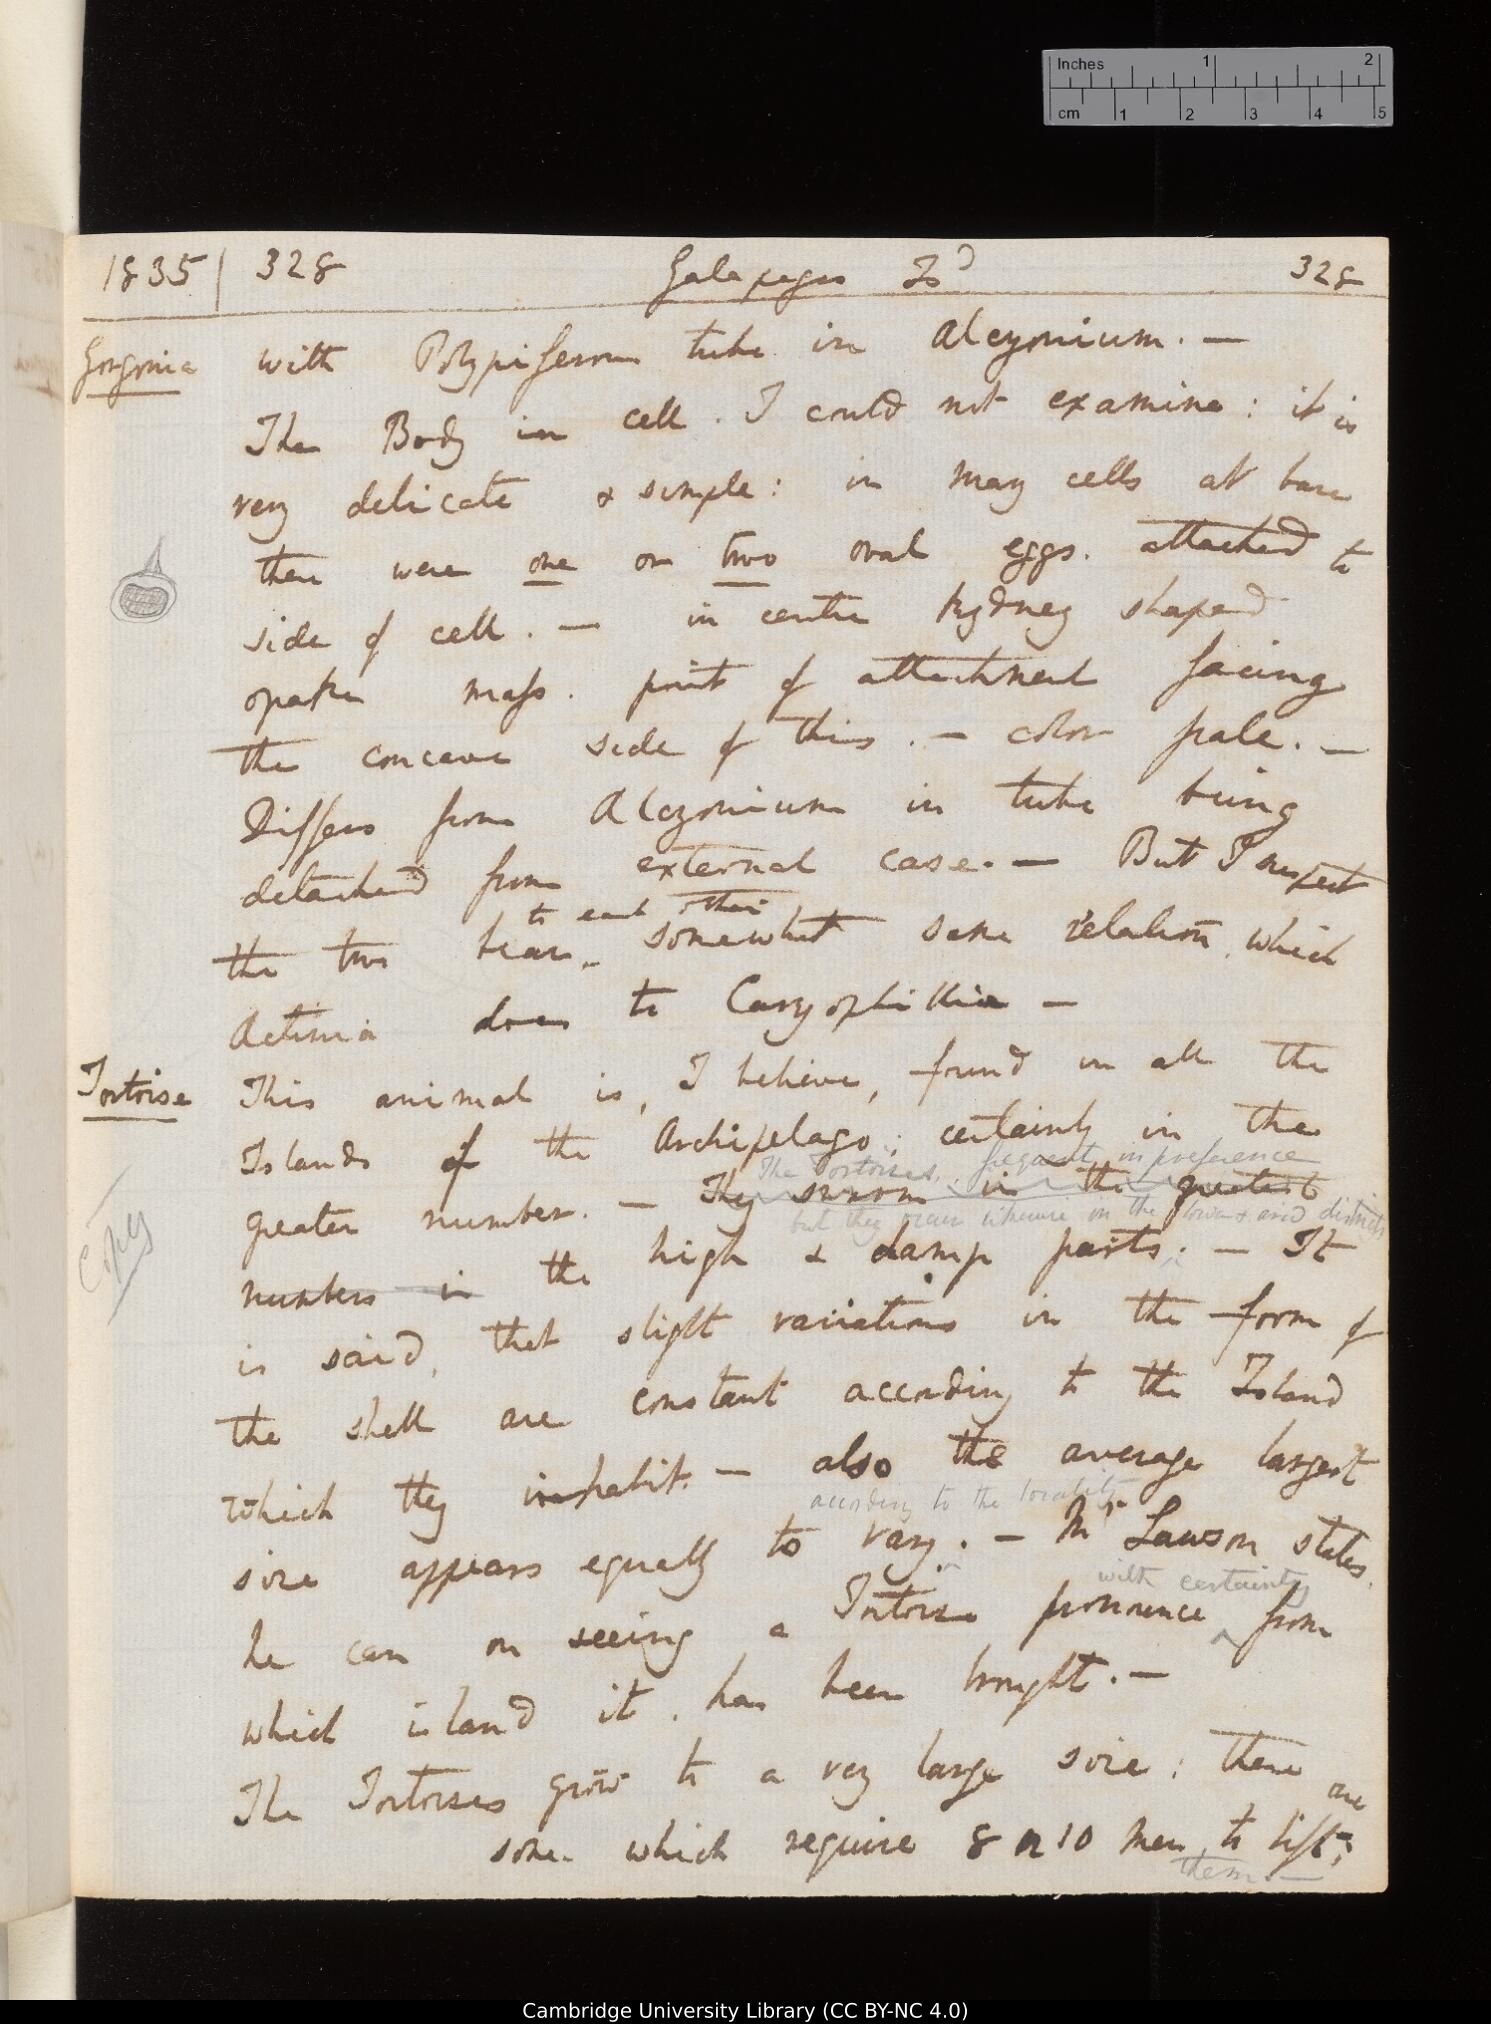 Inches 1 2
cm 1 2 3 4 5
1835 | 328 Galapagos Isd 328
Gorgonia with Polypiferous tube in Alcyonium. —
The Body in cell. I could not examine: it is
very delicate & simple: in many cells at base
there were one or two oval eggs. attached to
side of cell. — in centre kydney shaped
opake mass. point of attachment facing
the concave side of this. — color pale. —
Differs from Alcyonium in tube being
detached from external case. — But I suspect
to each other
the two bear somewhat same relation, which
Actinia does to Caryophillia —
Tortoise This animal is, I believe, found in all the
Islands of the Archipelago; certainly in the
The Tortoises frequent in preference
greater number. — They swarm in the greatest
but they occur likewise in the lower & arid districts
numbers in the high & damp parts; — It
Copy
is said, that slight variations in the form of
the shell are constant according to the Island
which they inhabit. — also the average largest
according to the locality
size appears equally to vary. — Mr Lawson states
with certainty
he can on seeing a Tortoise pronounce from
which island it has been brought. —
The Tortoises grow to a very large size; there are
some which require 8 or 10 men to lift;
them. —
Cambridge University Library (CC BY-NC 4.0)